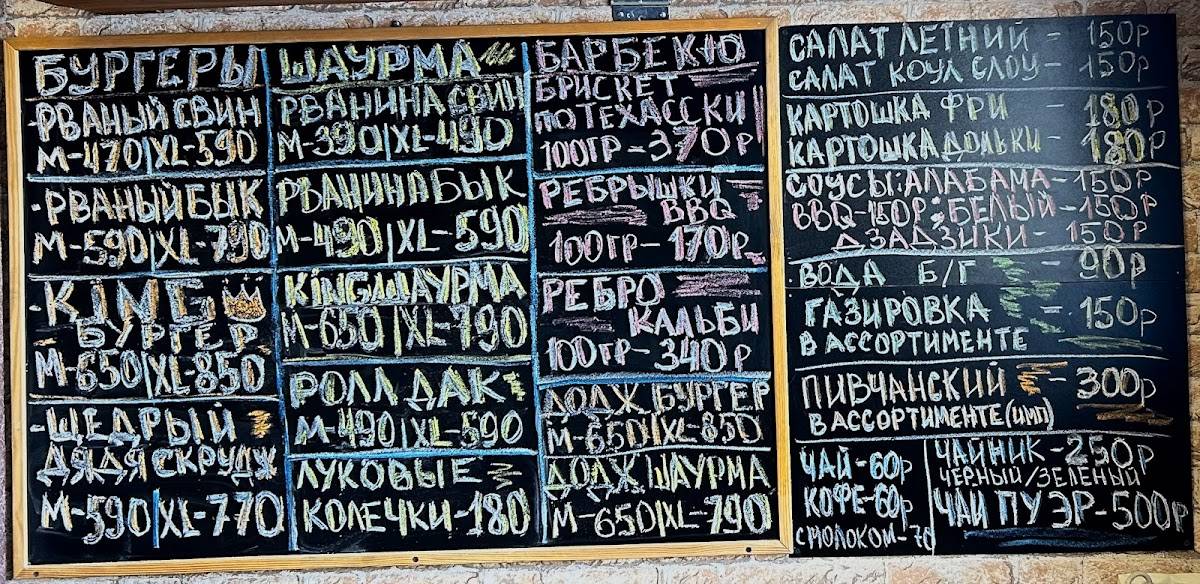 БУРГЕРЫ
-РВАНЫЙ СВИН
М-470|XL-590
-РВАНЫЙ БЫК
М-590|XL-790
-KING
БУРГЕР
М-650|XL-850
-ЩЕДРЫЙ
ДЯДЯ СКРУДЖ
М-590|XL-770
ШАУРМА
РВАНИНА СВИН
М-390|XL-490
РВАНИНА БЫК
М-490|XL-590
KING ШАУРМА
М-650|XL-790
РОЛЛ ДАК
М-490|XL-590
ЛУКОВЫЕ
КОЛЕЧКИ-180
БАРБЕКЮ
БРИСКЕТ
ПО ТЕХАССКИ
100ГР-370Р
РЕБРЫШКИ
BBQ
100ГР-170Р
РЕБРО
КАЛЬБИ
100ГР-340Р
ДОДЖ БУРГЕР
М-650|XL-850
ДОДЖ ШАУРМА
М-650|XL-790
САЛАТ ЛЕТНИЙ - 150Р
САЛАТ КОУЛ СЛОУ - 150Р
КАРТОШКА ФРИ - 180Р
КАРТОШКА ДОЛЬКИ - 180Р
СОУСЫ: АЛАБАМА-150Р
BBQ-150Р; БЕЛЫЙ-150Р
ДЗАДЗИКИ-150Р
ВОДА Б/Г - 90Р
ГАЗИРОВКА - 150Р
В АССОРТИМЕНТЕ
ПИВЧАНСКИЙ - 300Р
В АССОРТИМЕНТЕ(ИМП)
ЧАЙ-60Р
КОФЕ-60Р
С МОЛОКОМ-70
ЧАЙНИК-250Р
ЧЕРНЫЙ/ЗЕЛЕНЫЙ
ЧАЙ ПУЭР-500Р